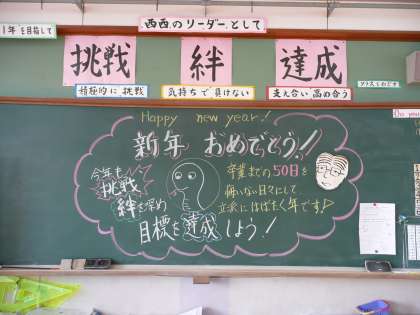 1年を目指して
西西のリーダーとして
挑戦
絆
達成
積極的に挑戦
気持ちで負けない
支え合い高め合う
Happy new year!
新年 おめでとう!!
今年も
挑戦
絆を深め
目標を達成しよう!
卒業までの50日を
悔いない日々にして
立派にはばたく年です!